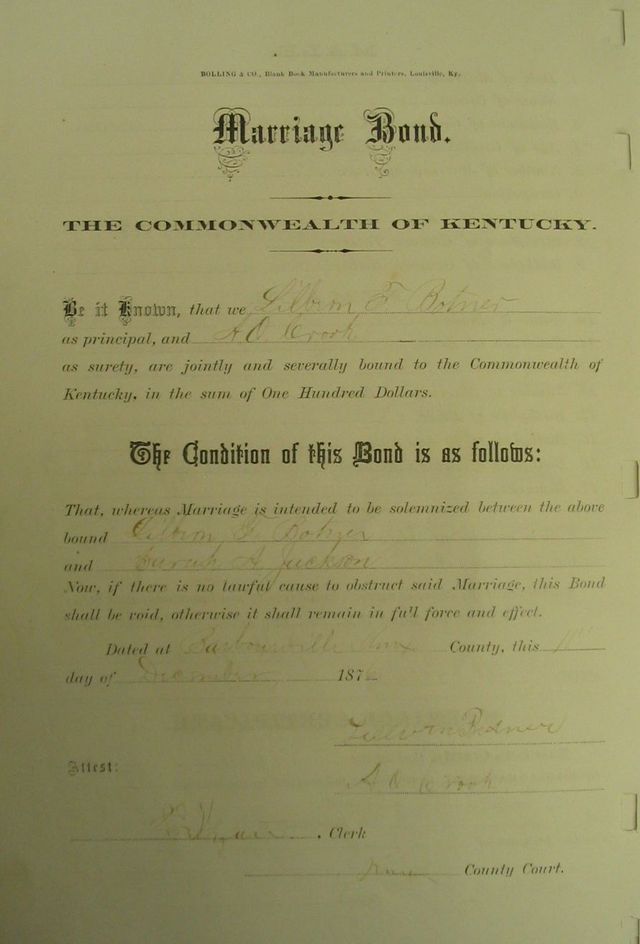 BOLLING & CO., Blank Book Manufacturers and Printers, Louisville, Ky.
Marriage Bond.
THE COMMONWEALTH OF KENTUCKY.
Be it Known, that we F Botner
as principal, and A O Crook
as surety, are jointly and severally bound to the Commonwealth of
Kentucky, in the sum of One Hundred Dollars.
The Condition of this Bond is as follows:
That, whereas Marriage is intended to be solemnized between the above
bound F Botner
and Sarah A Jackson
Now, if there is no lawful cause to obstruct said Marriage, this Bond
shall be void, otherwise it shall remain in full force and effect.
Dated at Barbourville Knox County, this
day of December 187
A O Crook
Attest:
, Clerk
Knox County Court.